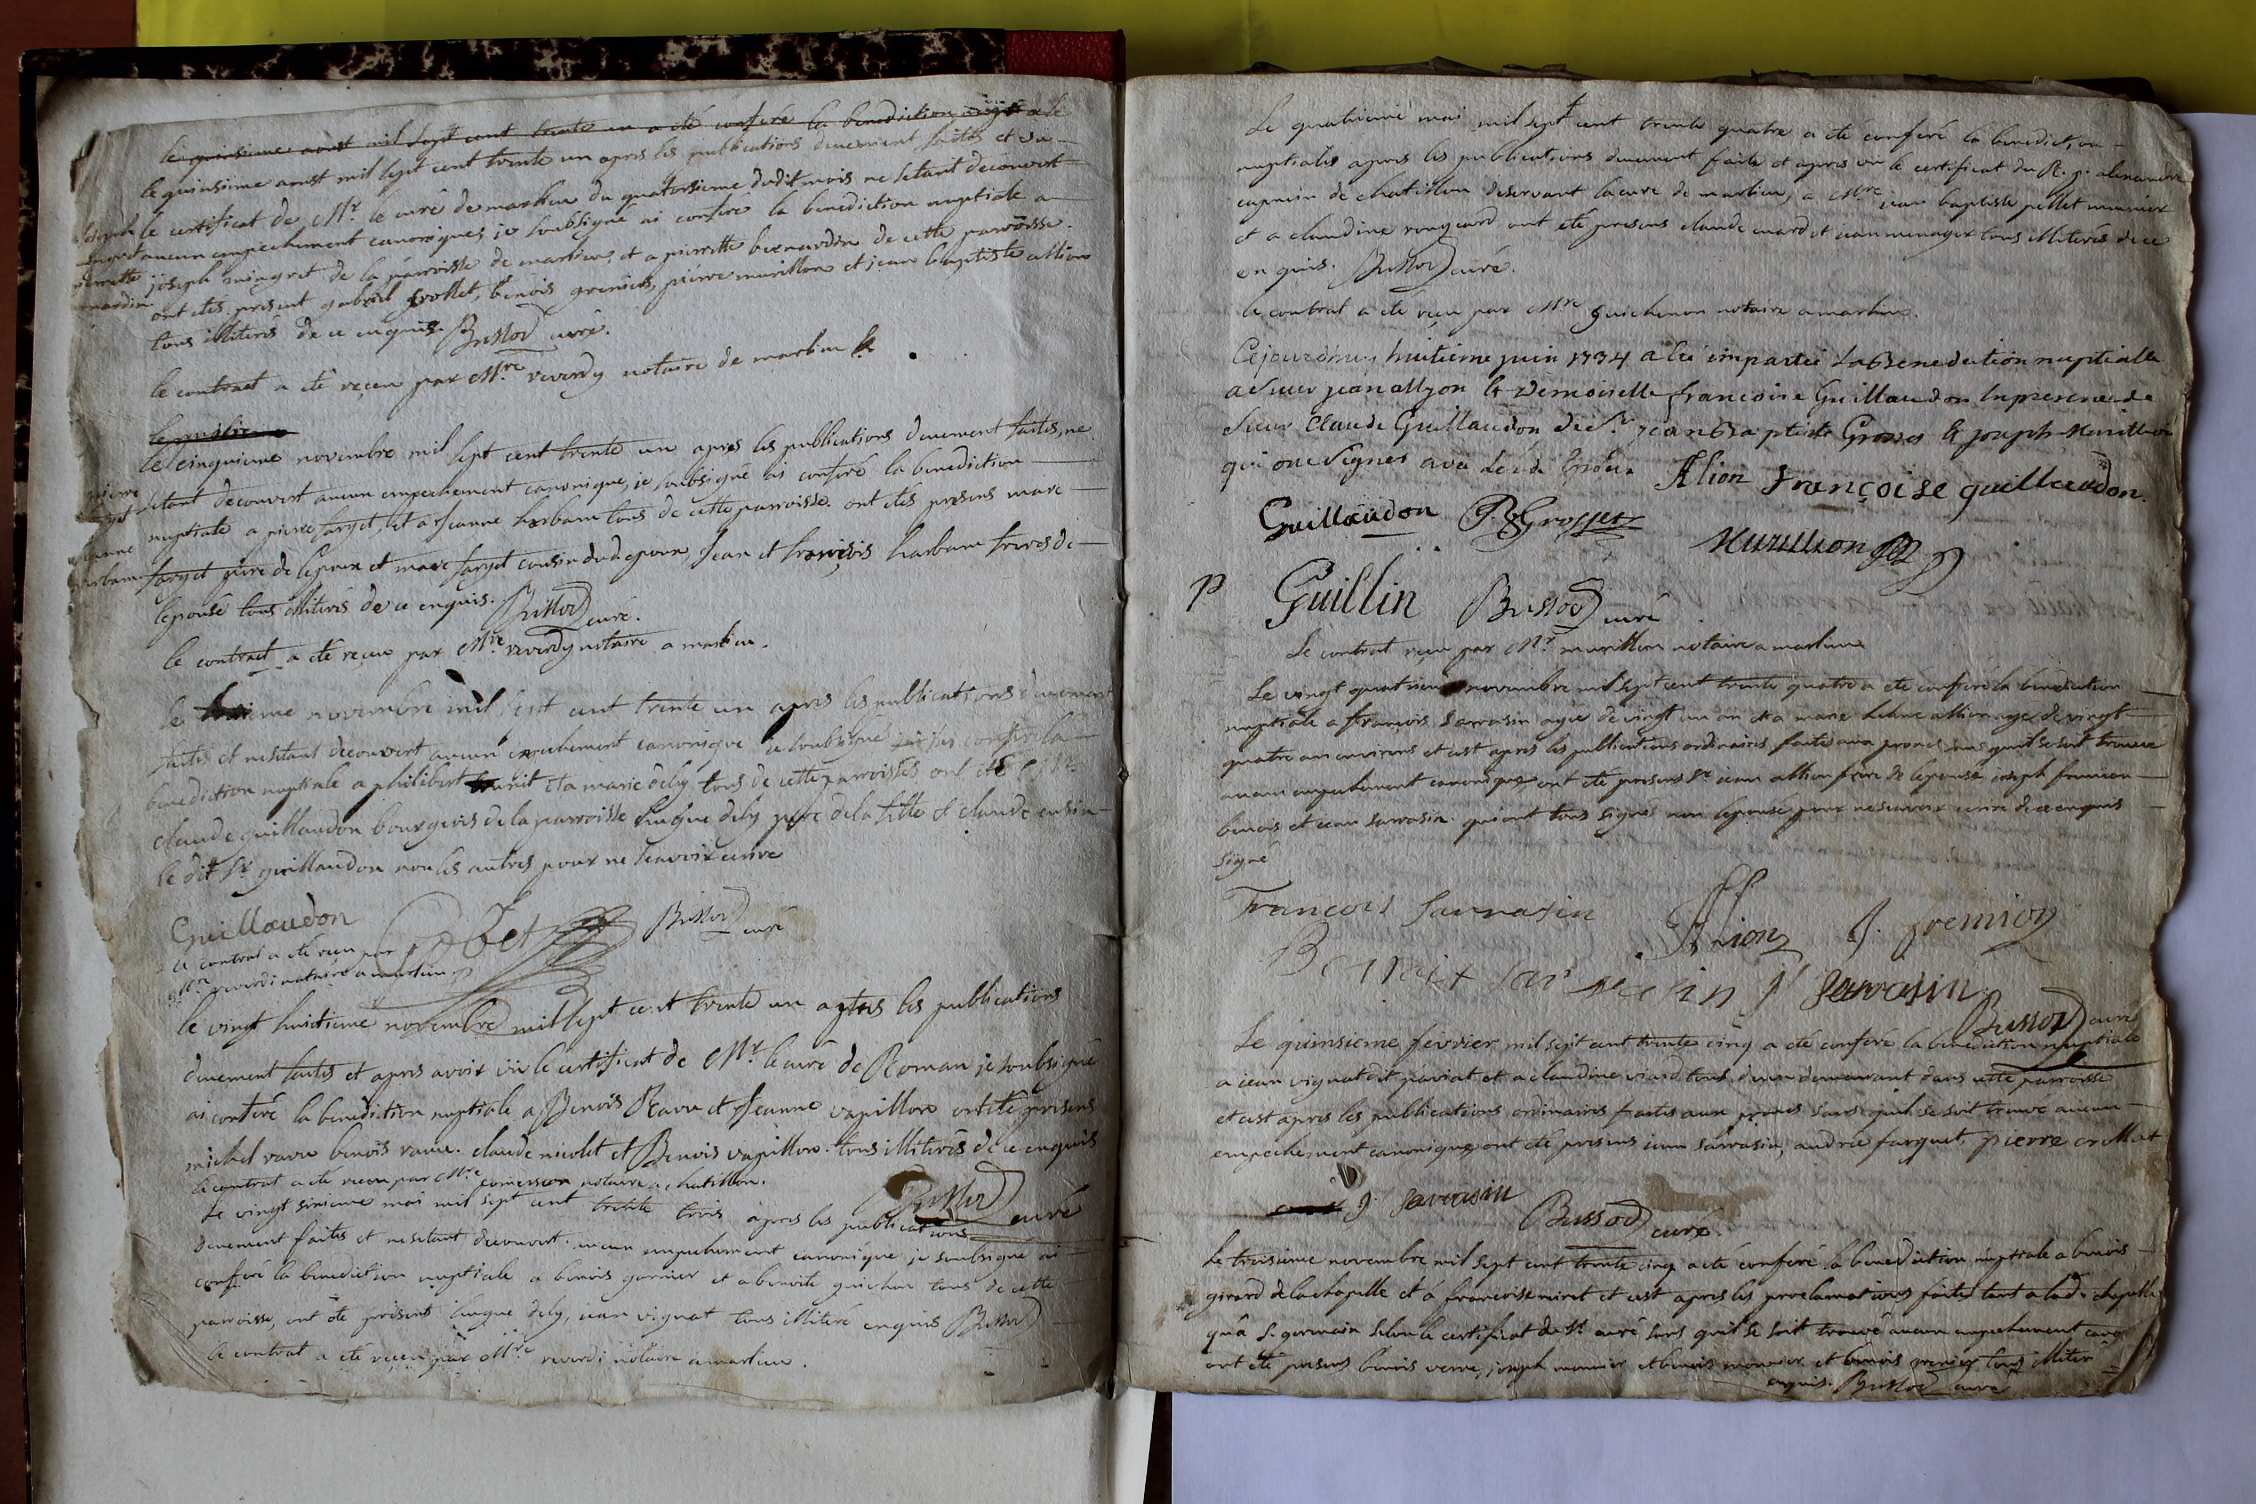 le quinsieme aoust mil sept cent trente un a été conferé la benediction
le quinsieme aoust mil sept cent trente un apres les publications duement faittes et vu
le certificat de Mr. le curé de marlieu du quatorsieme dudit mois ne setant decouvert
aucun empechement canonique, je soubsigné ai conferé la benediction nuptiale a
joseph mingret de la parroisse de marlieu, et a pierrette bernardin de cette parroisse.
ont étés present gabriel frollet, benois grenier, pierre murillon et jean baptiste allion
tous illiterés de ce enquis. Bussod curé.
le contract a été reçeu par Mre. reverdy notaire de marlieu
le cinquieme novembre mil sept cent trente un apres les publications duement faittes, ne
setant decouvert aucun empechement canonique, je soubsigné ai conferé la benediction
nuptiale a pierre farget, et a Jeanne harbam tous de cette parroisse. ont étés presens marc
farget pere de lepoux et marc farget cousin dud epoux, Jean et françois harbam freres de
lepouse tous illiterés de ce enquis. Bussod curé.
le contract a été reçeu par Mre reverdy notaire a marlieu.
novembre mil sept cent trente un apres les publications duement
faites et nesetant decouvert aucun empechement canonique je soubsigné ai conferé la
benediction nuptiale a philibert et a marie dely tous de cette parroisse ont été
claude guillaudon bourgeois de la parroisse hugue dely pere de la fille et claude
le dit Sr guillaudon non les autres pour ne scavoir ecrire
Guillaudon Bussod curé
le contrat a été reçu par
Mre reverdi notaire a marlieu
le vingt huitieme novembre mil sept cent trente un apres les publications
duement faites et apres avoir vu le certificat de Mr. le curé de Roman je soubsigné
ai conferé la benediction nuptiale a Benois Ravu et Jeanne vapillon ont été presens
michel ravu benois ravu. claude nicolet et Benois vapillon. tous illiterés de ce enquis
le contrat a été receu par Mre notaire a chatillon.
Bussod curé
Le vingt sixieme mai mil sept cent trente trois apres les publications
duement faites et nesetant decouvert aucun empechement canonique je soubsigné ai
conferé la benediction nuptiale a benois garnier et a benoite guichon tous de cette
parroisse, ont été presens hugue dely, jean vignat tous illiteré enquis Bussod
le contrat a été reçeu par Mre reverdi notaire a marlieu.
Le quatrieme mai mil sept cent trente quatre a été conferé la benediction
nuptiale apres les publications duement faite et apres vu le certificat du R. p. alexandre
capucin de chatillon deservant la cure de marlieu, a Mre jean baptiste pellet
et a claudine rougeard ont été presens claude euard et jean menager tous illiterés de ce
enquis. Bussod curé.
le contrat a été reçu par Mre guichenon notaire a marlieu.
Cejourdhuy huitieme juin 1734 a été impartié la Benediction nuptialle
a Sieur jean allyon & Demoiselle francoise Guillaudon En presence de
Sieur Claude Guillaudon de Sr. jean Baptiste Grosset & joseph murillon
qui ont signés avec
Alion françoise guillaudon.
Guillaudon Grosset
Murillion
P Guillin Bussod curé
Le contrat reçu par Mr. murillon notaire a marlieu
Le vingt quatrieme novembre mil sept cent trente quatre a été conferé la benediction
nuptiale a françois sarrasin agé de vingt un an et a marie allion agé de vingt
quatre an environs et cest apres les publications ordinaires faites aux prones sans quil se soit trouvé
aucun empechement canonique ont été presens Sr jean allion frere de lepouse joseph fremion
benois et jean sarrasin. qui ont tous signés non lepouse pour ne scavoir ecrire de ce enquis
signé
François Sarrasin Allion J. fremion
Benoit J Sarrasin
Bussod curé
Le quinsieme fevrier mil sept cent trente cinq a été conferé la benediction nuptiale
a jean vignat dit paviat et a claudine viard tous deux demeurant dans cette parroisse
et cest apres les publications ordinaires faites aux prones sans quil se soit trouvé aucun
empechement canonique ont été presens jean sarrasin, andrée farguet, pierre
J Sarrasin Bussod curé
Le troisieme novembre mil sept cent trente cinq a été conferé la benediction nuptiale a benois
girard de la chapelle et a francoise miret et cest apres les proclamations faites tant a lad. chapelle
qu'a St germain selon le certificat de Sr curé sans quil se soit trouvé aucun empechement
ont été presens benois verne, joseph monnier et benois monnier et benois tous illiteré
enquis. Bussod curé